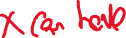 x can have